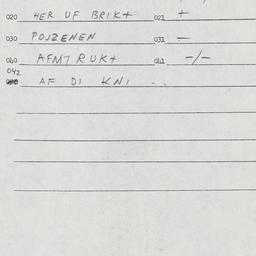 020 HER UF BRIKt 021 +
030 POJZENEN 031 —
040 AFM7 RUKt 041 -/-
042
AF DI KNI